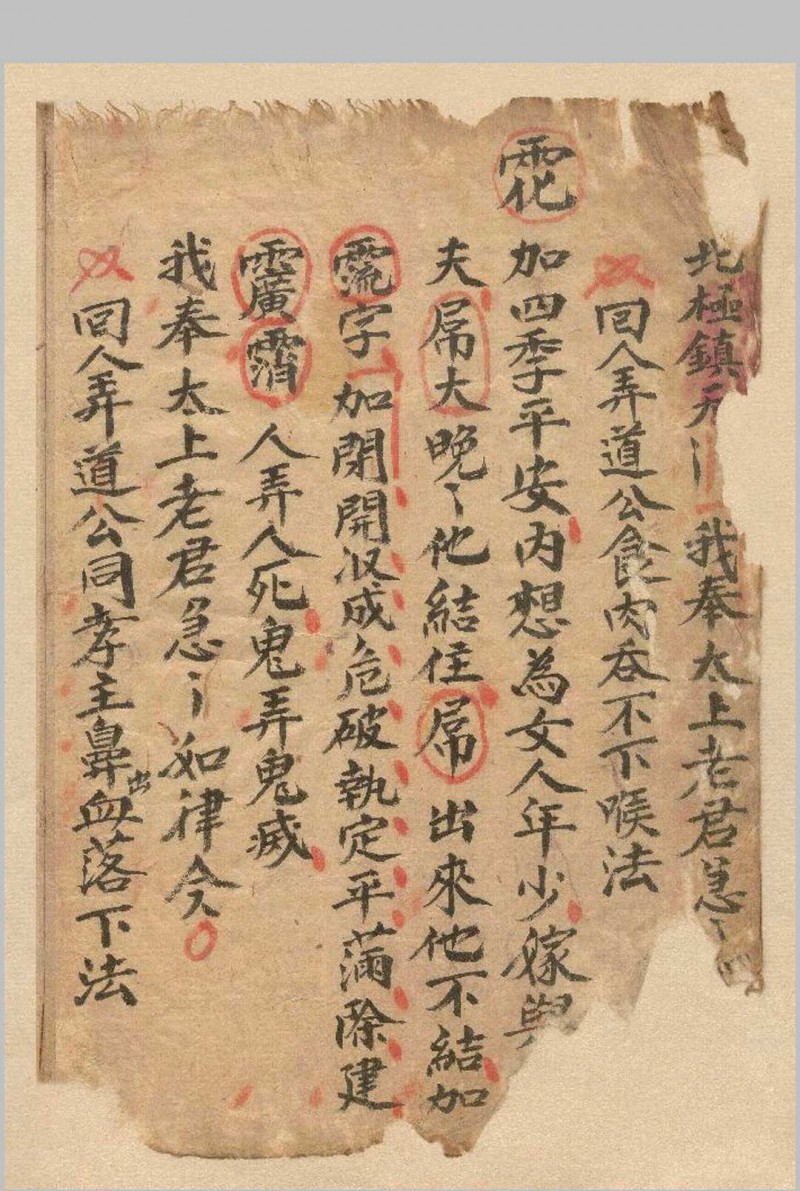 北極鎮天〻我奉太上老君急〻
囘人弄道公食肉吞不下喉法
加四季平安内想為女人年少嫁與
夫屌大晚〻他結住屌出來他不結加
字加閉開収成危破執定平滿除建
人弄人死鬼弄鬼滅
我奉太上老君急〻如律令
囘人弄道公同孝主鼻出血落下法